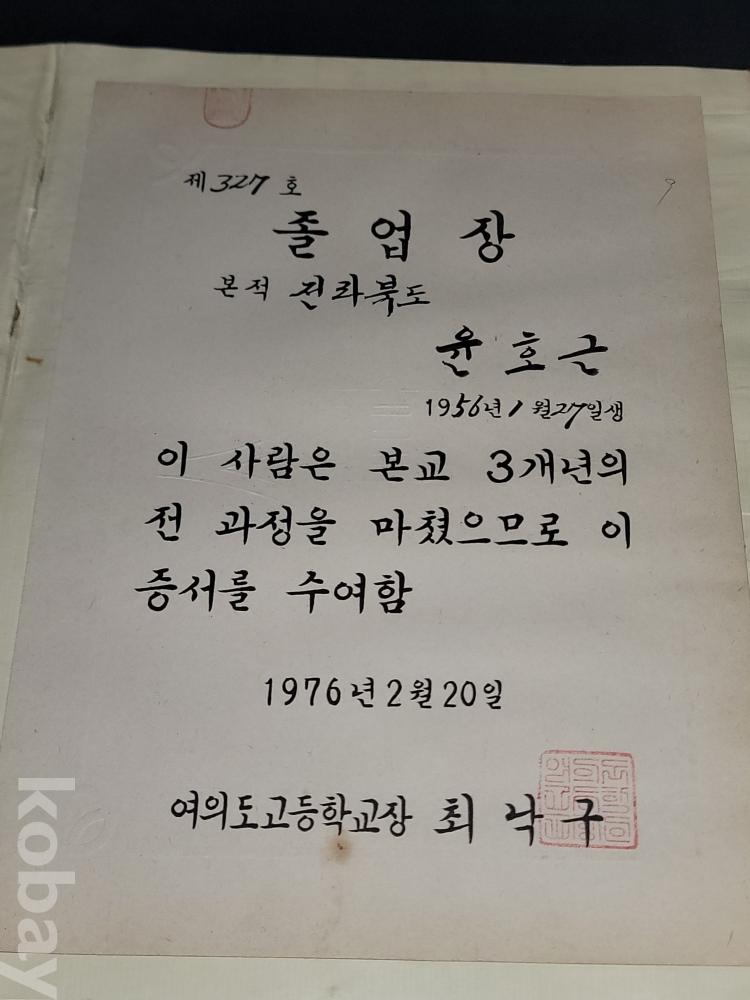 제 327 호
졸 업 장
본적 전라북도
윤 호 근
1956년 1월 27일생
이 사람은 본교 3개년의
전 과정을 마쳤으므로 이
증서를 수여함
1976년 2월 20일
여의도고등학교장 최 낙 구
kobay